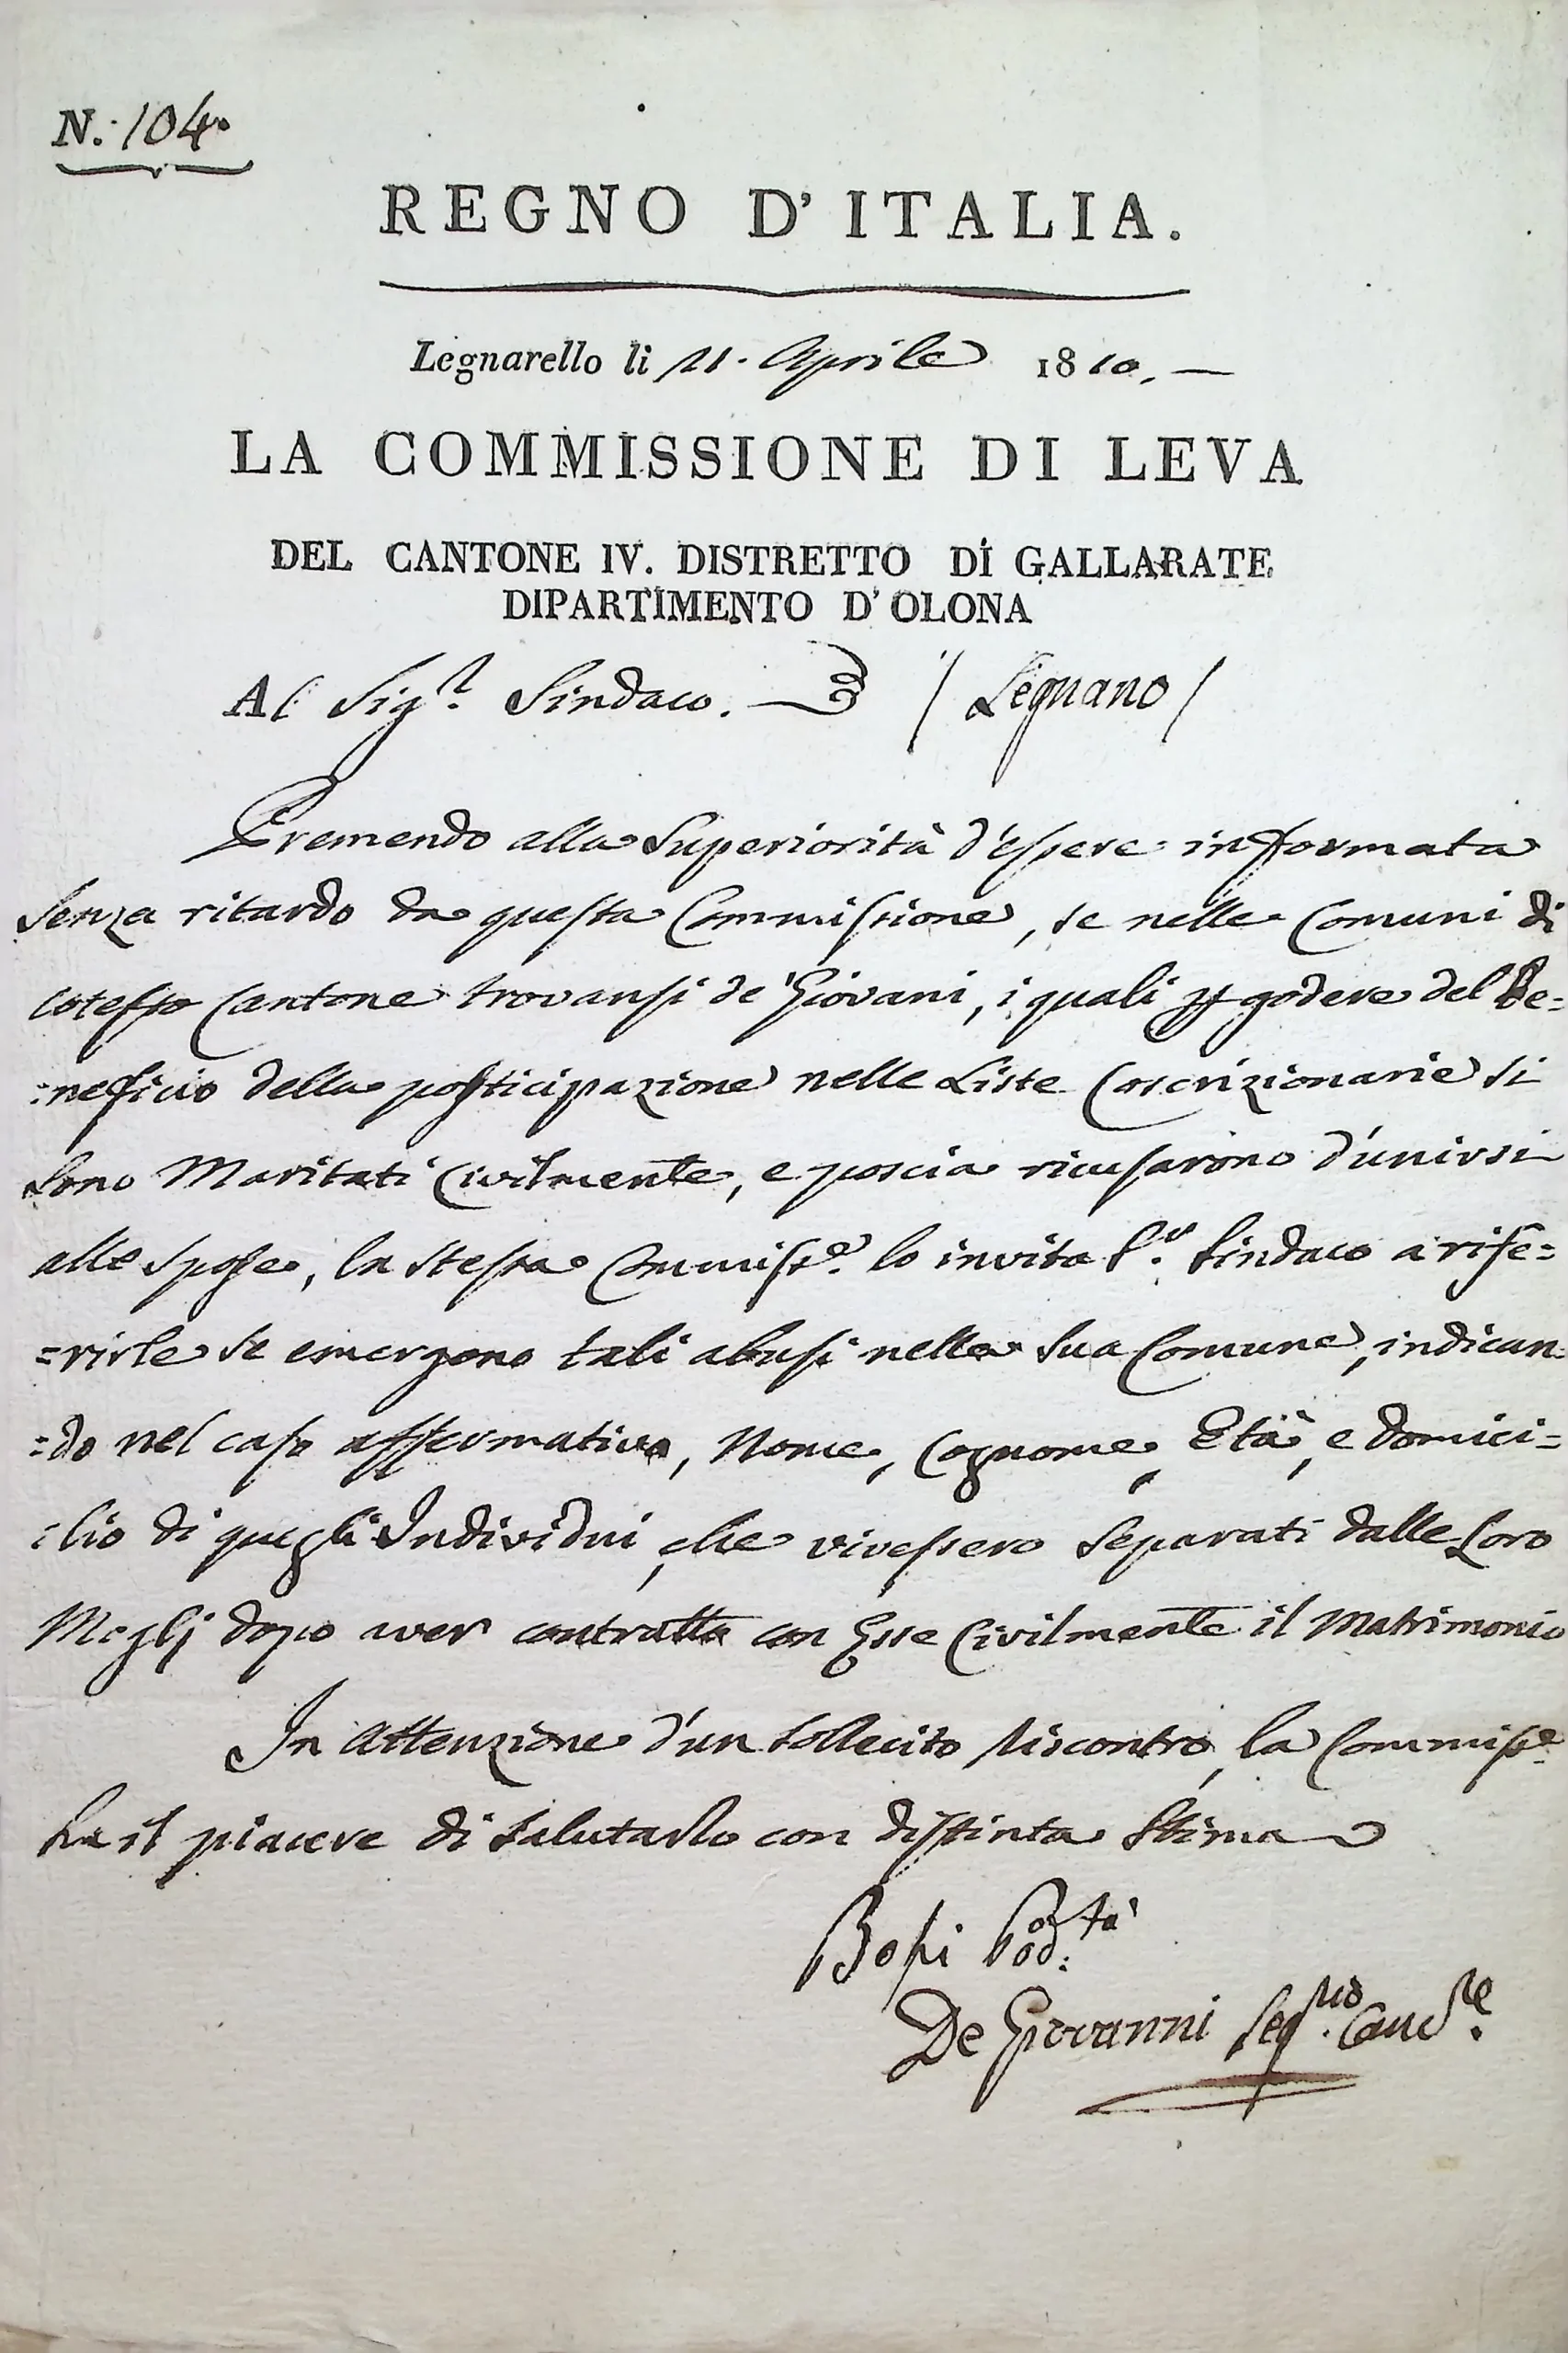 N.: 104.
REGNO D'ITALIA.
Legnarello li 11. Aprile 1810. —
LA COMMISSIONE DI LEVA
DEL CANTONE IV. DISTRETTO DI GALLARATE
DIPARTIMENTO D'OLONA
Al Sig.r Sindaco. / Legnano /
Premendo alla Superiorità d'essere informata
senza ritardo da questa Commissione, se nelle Comuni di
cotesto Cantone trovansi de' Giovani, i quali p godere del Be=
=neficio della posticipazione nelle Liste Coscrizionarie si
sono Maritati Civilmente, e poscia ricusarono d'unirsi
alle spose, la stessa Commiss.e lo invita S.r Sindaco a rife=
=rirle se emergono tali abusi nella sua Comune, indican=
=do nel caso affermativo, Nome, Cognome, Età, e domici=
=lio di quegli Individui, che vivessero separati dalle Loro
Moglj dopo aver contratto con Esse Civilmente il Matrimonio
In Attenzione d'un sollecito Riscontro, la Commiss.e
ha il piacere di salutarlo con distinta Stima
Bossi Pod.tà
De Giovanni Seg.rio Canc.re